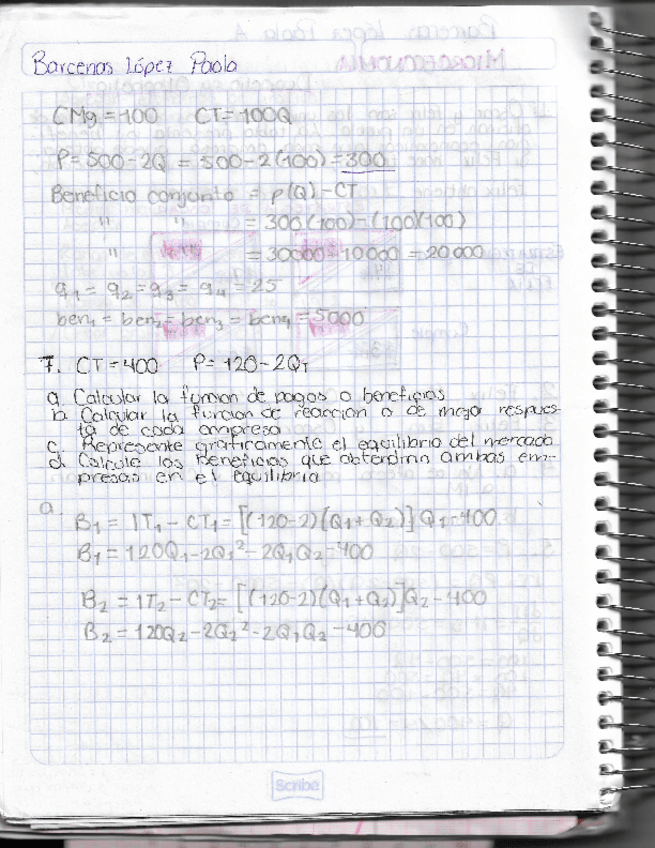 Barcenas López Paola
CMg=100 CT=100Q
P=500-2Q = 500-2(100)=300
Beneficio conjunto = p(Q)-CT
" " = 300(100)-(100)(100)
" = 30000-10000 = 20000
q1 = q2 = q3 = q4 = 25
ben1 = ben2 = ben3 = ben4 = 5000
7. CT=400 P= 120-2QT
a. Calcular la funcion de pagos o beneficios
b. Calcular la funcion de reacción o de mejor respues-
ta de cada empresa
c. Represente graficamente el equilibrio del mercado
d. Calcule los Beneficios que obtendrian ambas em-
presas en el equilibrio
a.
B1 = IT1 - CT1 = [(120-2)(Q1+Q2)] Q1-400
B1 = 120Q1-2Q1²-2Q1Q2-400
B2 = IT2 - CT2= [(120-2)(Q1+Q2)]Q2-400
B2 = 120Q2-2Q2²-2Q1Q2-400
Scribe